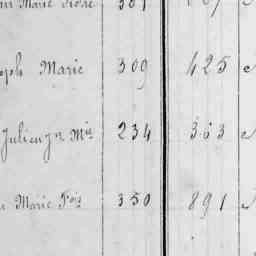 Marie Pierre 301
Joseph Marie 309 425
Julien Jn Mie 234 363
Marie Fois 350 891